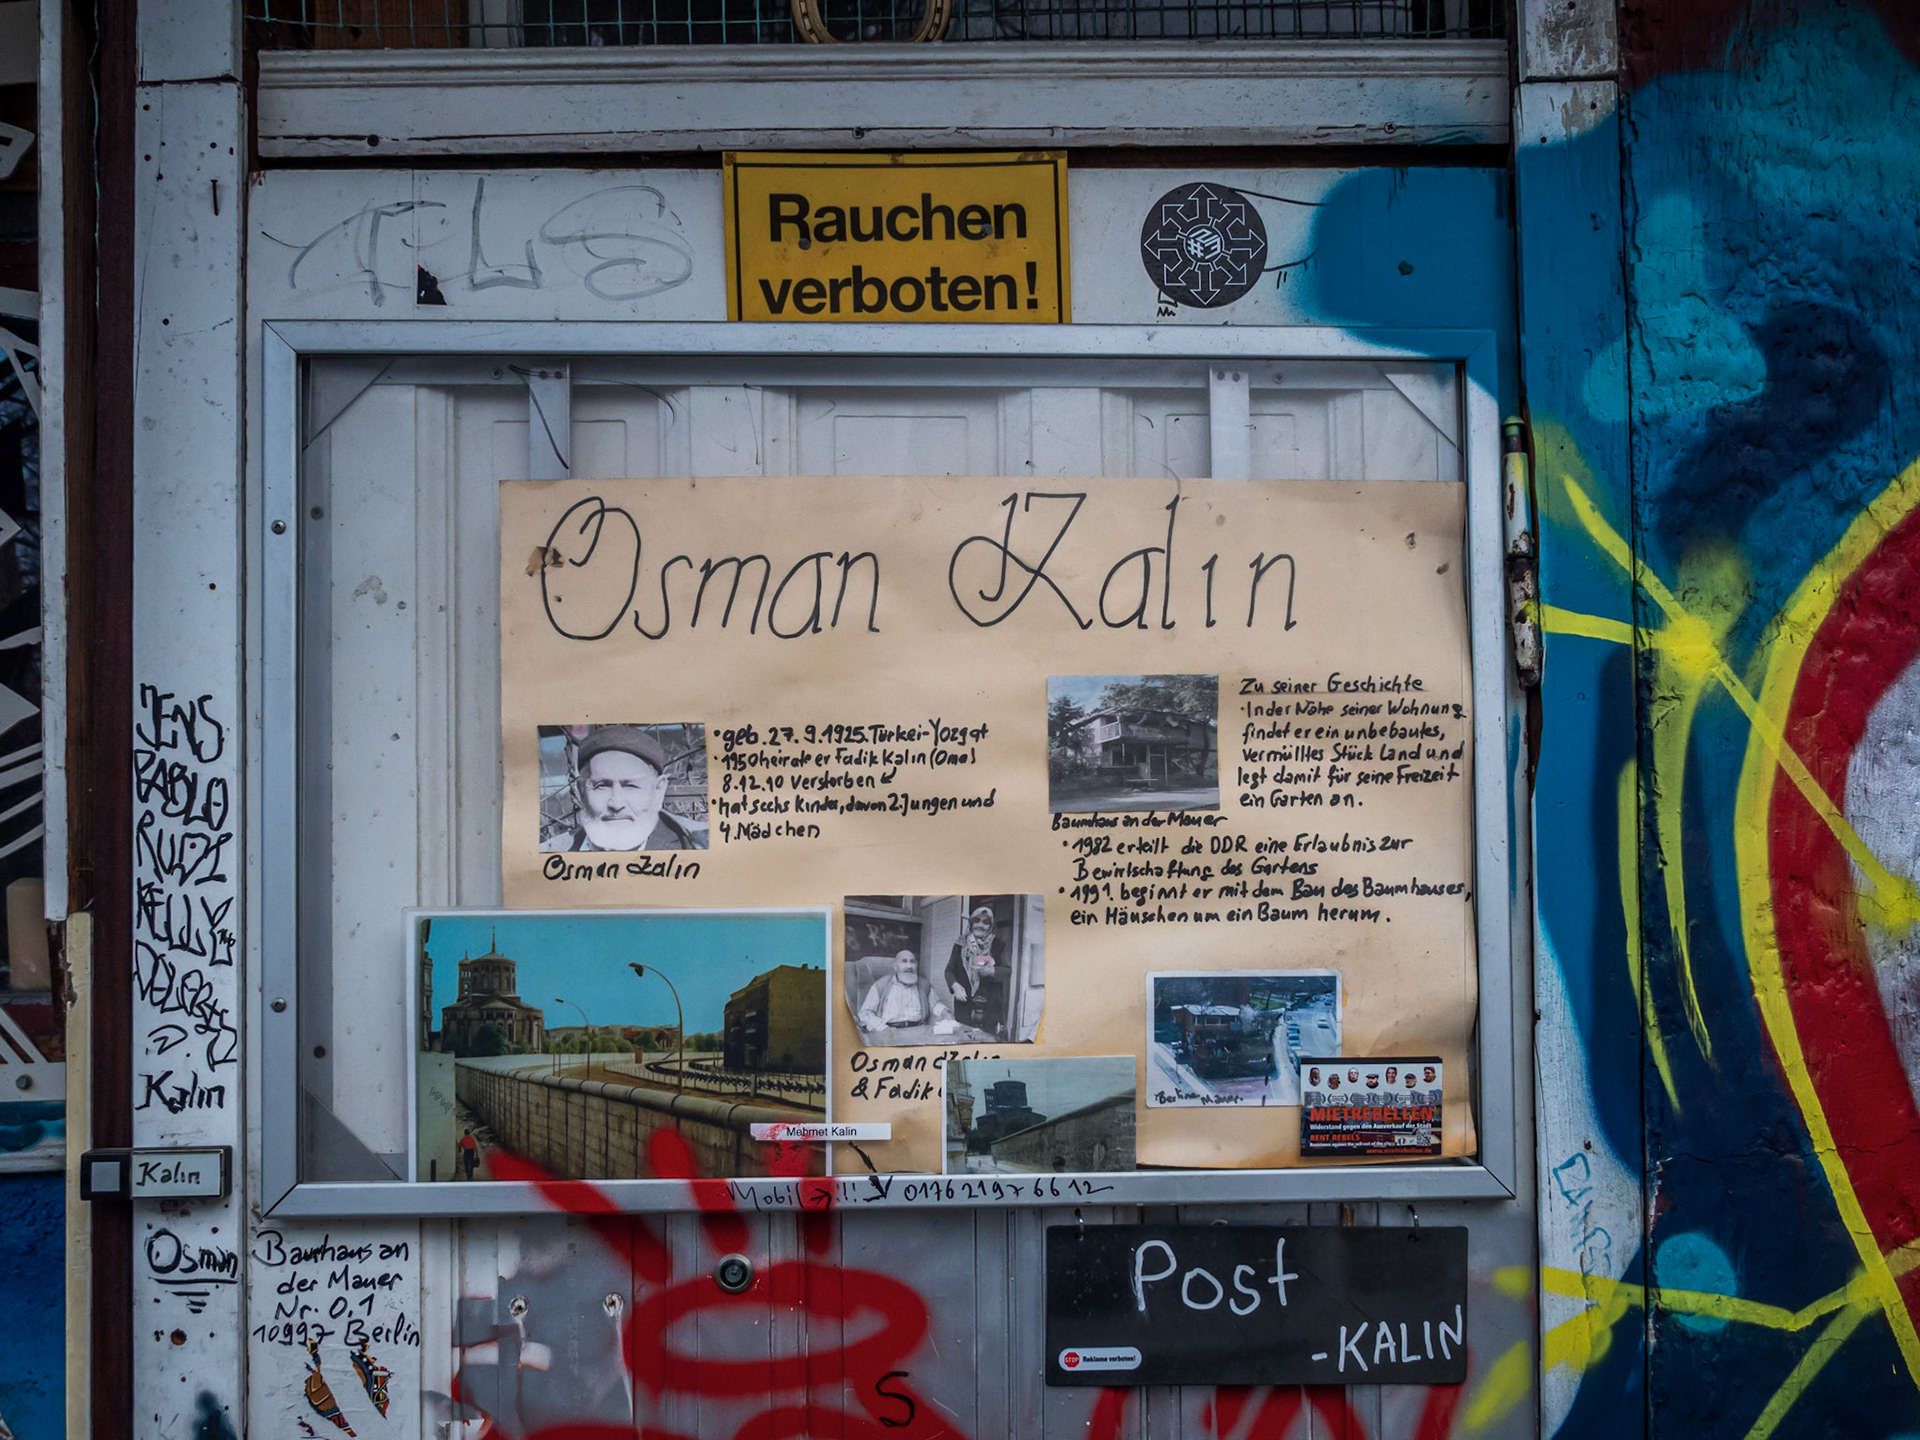 Rauchen
verboten!
Osman Kalin
• geb. 27.9.1925. Türkei-Yozgat
• 1950 heirate er Fadik Kalin (Oma)
8.12.10 verstorben
• hat sechs Kinder, davon 2 Jungen und
4. Mädchen
Osman Kalin
Zu seiner Geschichte
• In der Nähe seiner Wohnung
findet er ein unbebautes,
vermülltes Stück Land und
legt damit für seine Freizeit
ein Garten an.
Baumhaus an der Mauer
• 1982 erteilt die DDR eine Erlaubnis zur
Bewirtschaftung des Gartens
• 1991. beginnt er mit dem Bau des Baumhauses,
ein Häuschen um ein Baum herum.
Osman Kalin
& Fadik
Berliner Mauer.
MIETREBELLEN
Widerstand gegen den Ausverkauf der Stadt
RENT REBELS
www.mietrebellen.de
Mehmet Kalin
Mobil → !!! 0176 2197 6612
JENS
PABLO
RUDI
KELLY
Kalin
Kalin
Osman
Baumhaus an
der Mauer
Nr. 0,1
10997 Berlin
Post
-KALIN
STOP Reklame verboten!
S